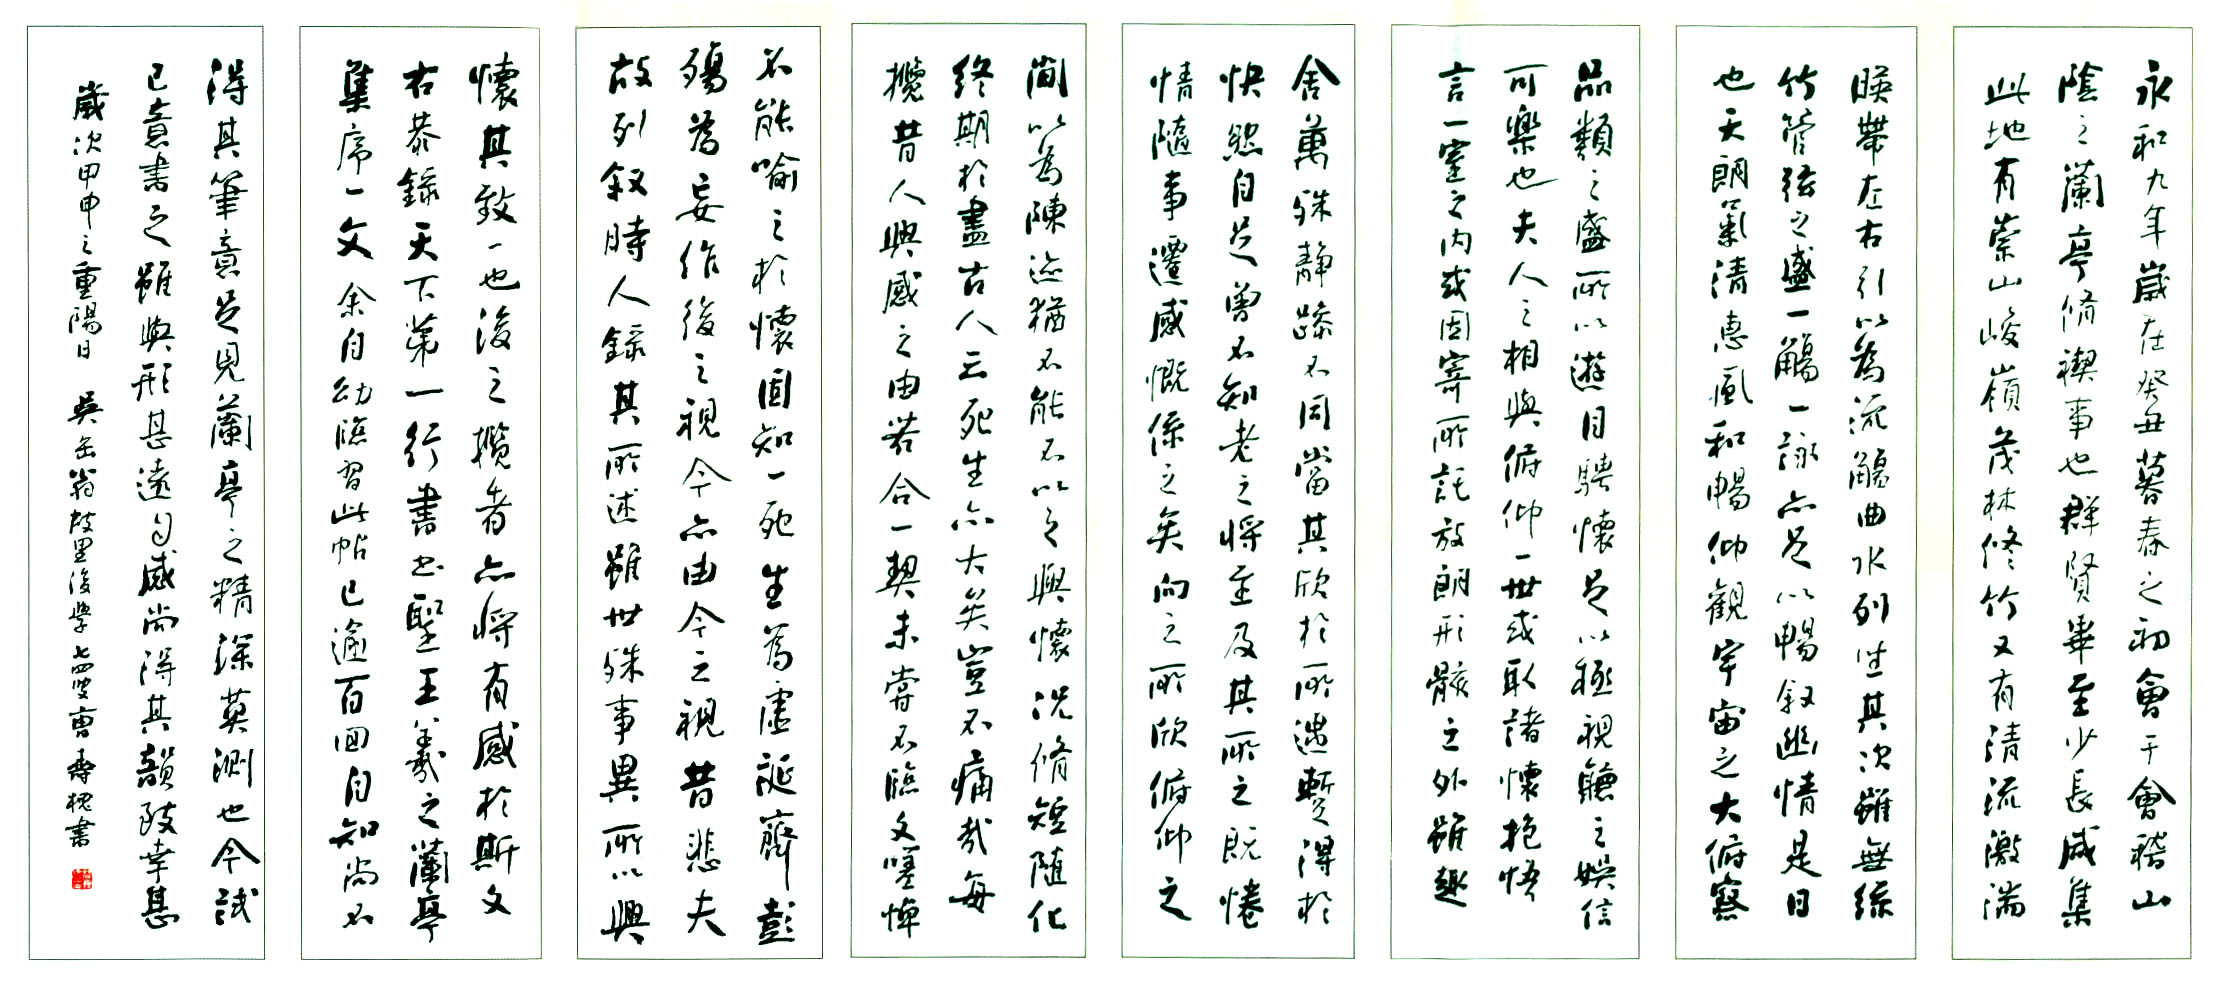 永和九年歲在癸丑暮春之初會于會稽山
陰之蘭亭脩禊事也群賢畢至少長咸集
此地有崇山峻嶺茂林修竹又有清流激湍
暎帶左右引以為流觴曲水列坐其次雖無絲
竹管弦之盛一觴一詠亦足以暢叙幽情是日
也天朗氣清惠風和暢仰觀宇宙之大俯察
品類之盛所以遊目騁懷足以極視聽之娛信
可樂也夫人之相與俯仰一世或取諸懷抱悟
言一室之內或因寄所託放朗形骸之外雖趣
舍萬殊靜躁不同當其欣於所遇暫得於
快然自足曾不知老之將至及其所之既惓
情隨事遷感慨係之矣向之所欣俯仰之
間以為陳迹猶不能不以之興懷況脩短隨化
終期於盡古人云死生亦大矣豈不痛哉每
攬昔人興感之由若合一契未嘗不臨文嗟悼
不能喻之於懷固知一死生為虛誕齊彭
殤為妄作後之視今亦由今之視昔悲夫
故列叙時人錄其所述雖世殊事異所以興
懷其致一也後之攬者亦將有感於斯文
右恭錄天下第一行書書聖王羲之蘭亭
集序一文 余自幼臨習此帖已逾百回自知尚不
得其筆意足見蘭亭之精深莫測也今試
已意書之雖與形甚遠自感尚得其韻致幸甚
歲次甲申之重陽日 吳缶翁故里後學七四叟曹壽槐書